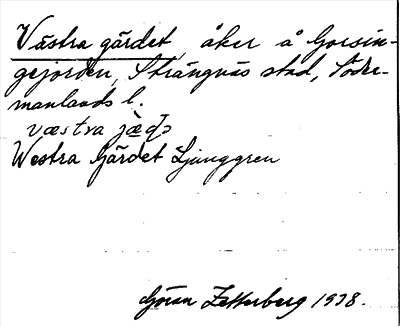 Västra gärdet, åker å Gorsin-
gejorden, Strängnäs stad, Söder-
manlands l.
Westra Gärdet Ljunggren
Göran Zetterberg 1938.